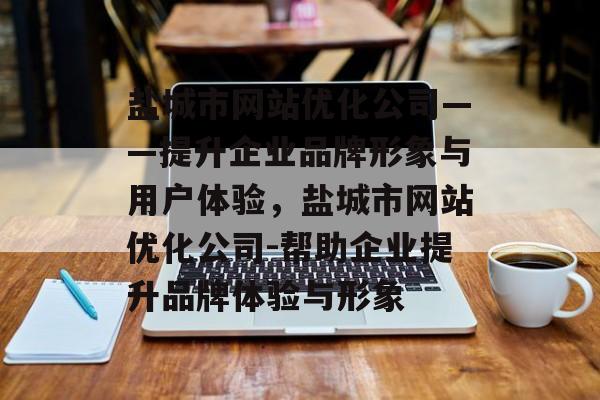 盐城市网站优化公司—
—提升企业品牌形象与
用户体验，盐城市网站
优化公司-帮助企业提
升品牌体验与形象